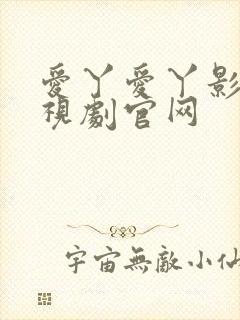 愛丫愛丫影
視劇官网
宇宙無敵小仙